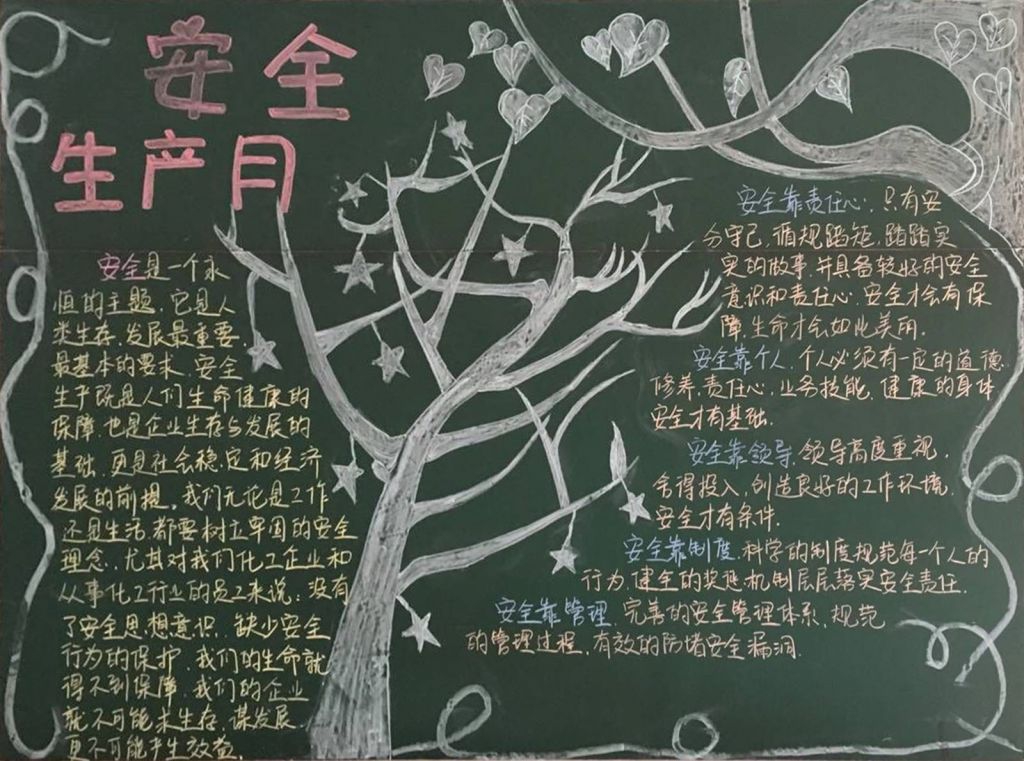 安全
生产月
安全是一个永
恒的主题，它是人
类生存、发展最重要、
最基本的要求，安全
生产既是人们生命健康的
保障，也是企业生存与发展的
基础，更是社会稳定和经济
发展的前提。我们无论是工作
还是生活都要树立牢固的安全
理念，尤其对我们化工企业和
从事化工行业的员工来说，没有
了安全思想意识，缺少安全
行为的保护，我们的生命就
得不到保障，我们的企业
就不可能求生存、谋发展，
更不可能产生效益。
安全靠责任心，只有安
分守己，循规蹈矩，踏踏实
实的做事，并具备较好的安全
意识和责任心，安全才会有保
障，生命才会如此美丽。
安全靠个人，个人必须有一定的道德
修养，责任心，业务技能，健康的身体
安全才有基础。
安全靠领导，领导高度重视，
舍得投入，创造良好的工作环境，
安全才有条件。
安全靠制度，科学的制度规范每一个人的
行为，健全的奖惩机制层层落实安全责任。
安全靠管理，完善的安全管理体系，规范
的管理过程，有效的防堵安全漏洞。